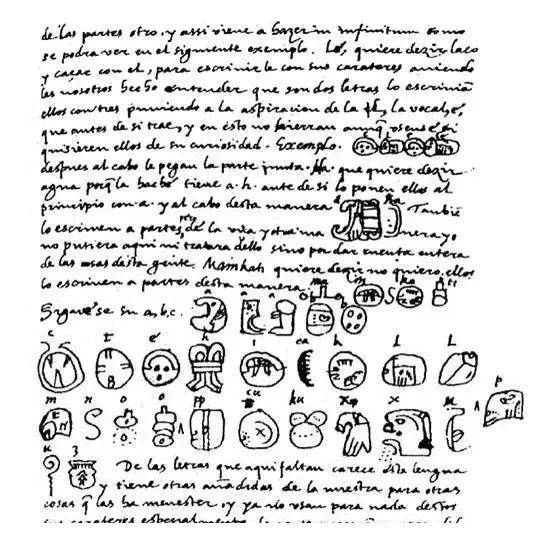 de las partes otro, y assi viene a hazer in infinitum como
se podra ver en el siguiente exemplo. Lé, quiere dezir laço
y caçar con el, para escrivirle con sus carateres aviendo
les nosotros hecho entender que son dos letras lo escrivian
ellos con tres puniendo a la aspiracion de la l, la vocal, é,
que antes de si trae, y en esto no hierran aunq̃ usense, si
quisieren ellos de su curiosidad. Exemplo.
despues al cabo le pegan la parte junta. Ha que quiere dezir
agua porq̃ la haché tiene a. h. ante de si lo ponen ellos al
principio con a. y al cabo desta manera Tambiē
lo escriven a partes, de la una y otra manera yo
no pusiera aqui ni tratara dello sino por dar cuenta entera
de las cosas desta gente. Mainkati quiere dezir no quiero, ellos
lo escriven a partes desta manera. ma i n ka ti
Siguese su a, b, c. a a a b b
c t é h i ca k l l
m n o o pp cu ku x x u p
u z De las letras que aqui faltan carece esta lengua
y tiene otras añadidas de la nuestra para otras
cosas q̃ las ha menester, y ya no usan para nada destos
sus carateres especialmente